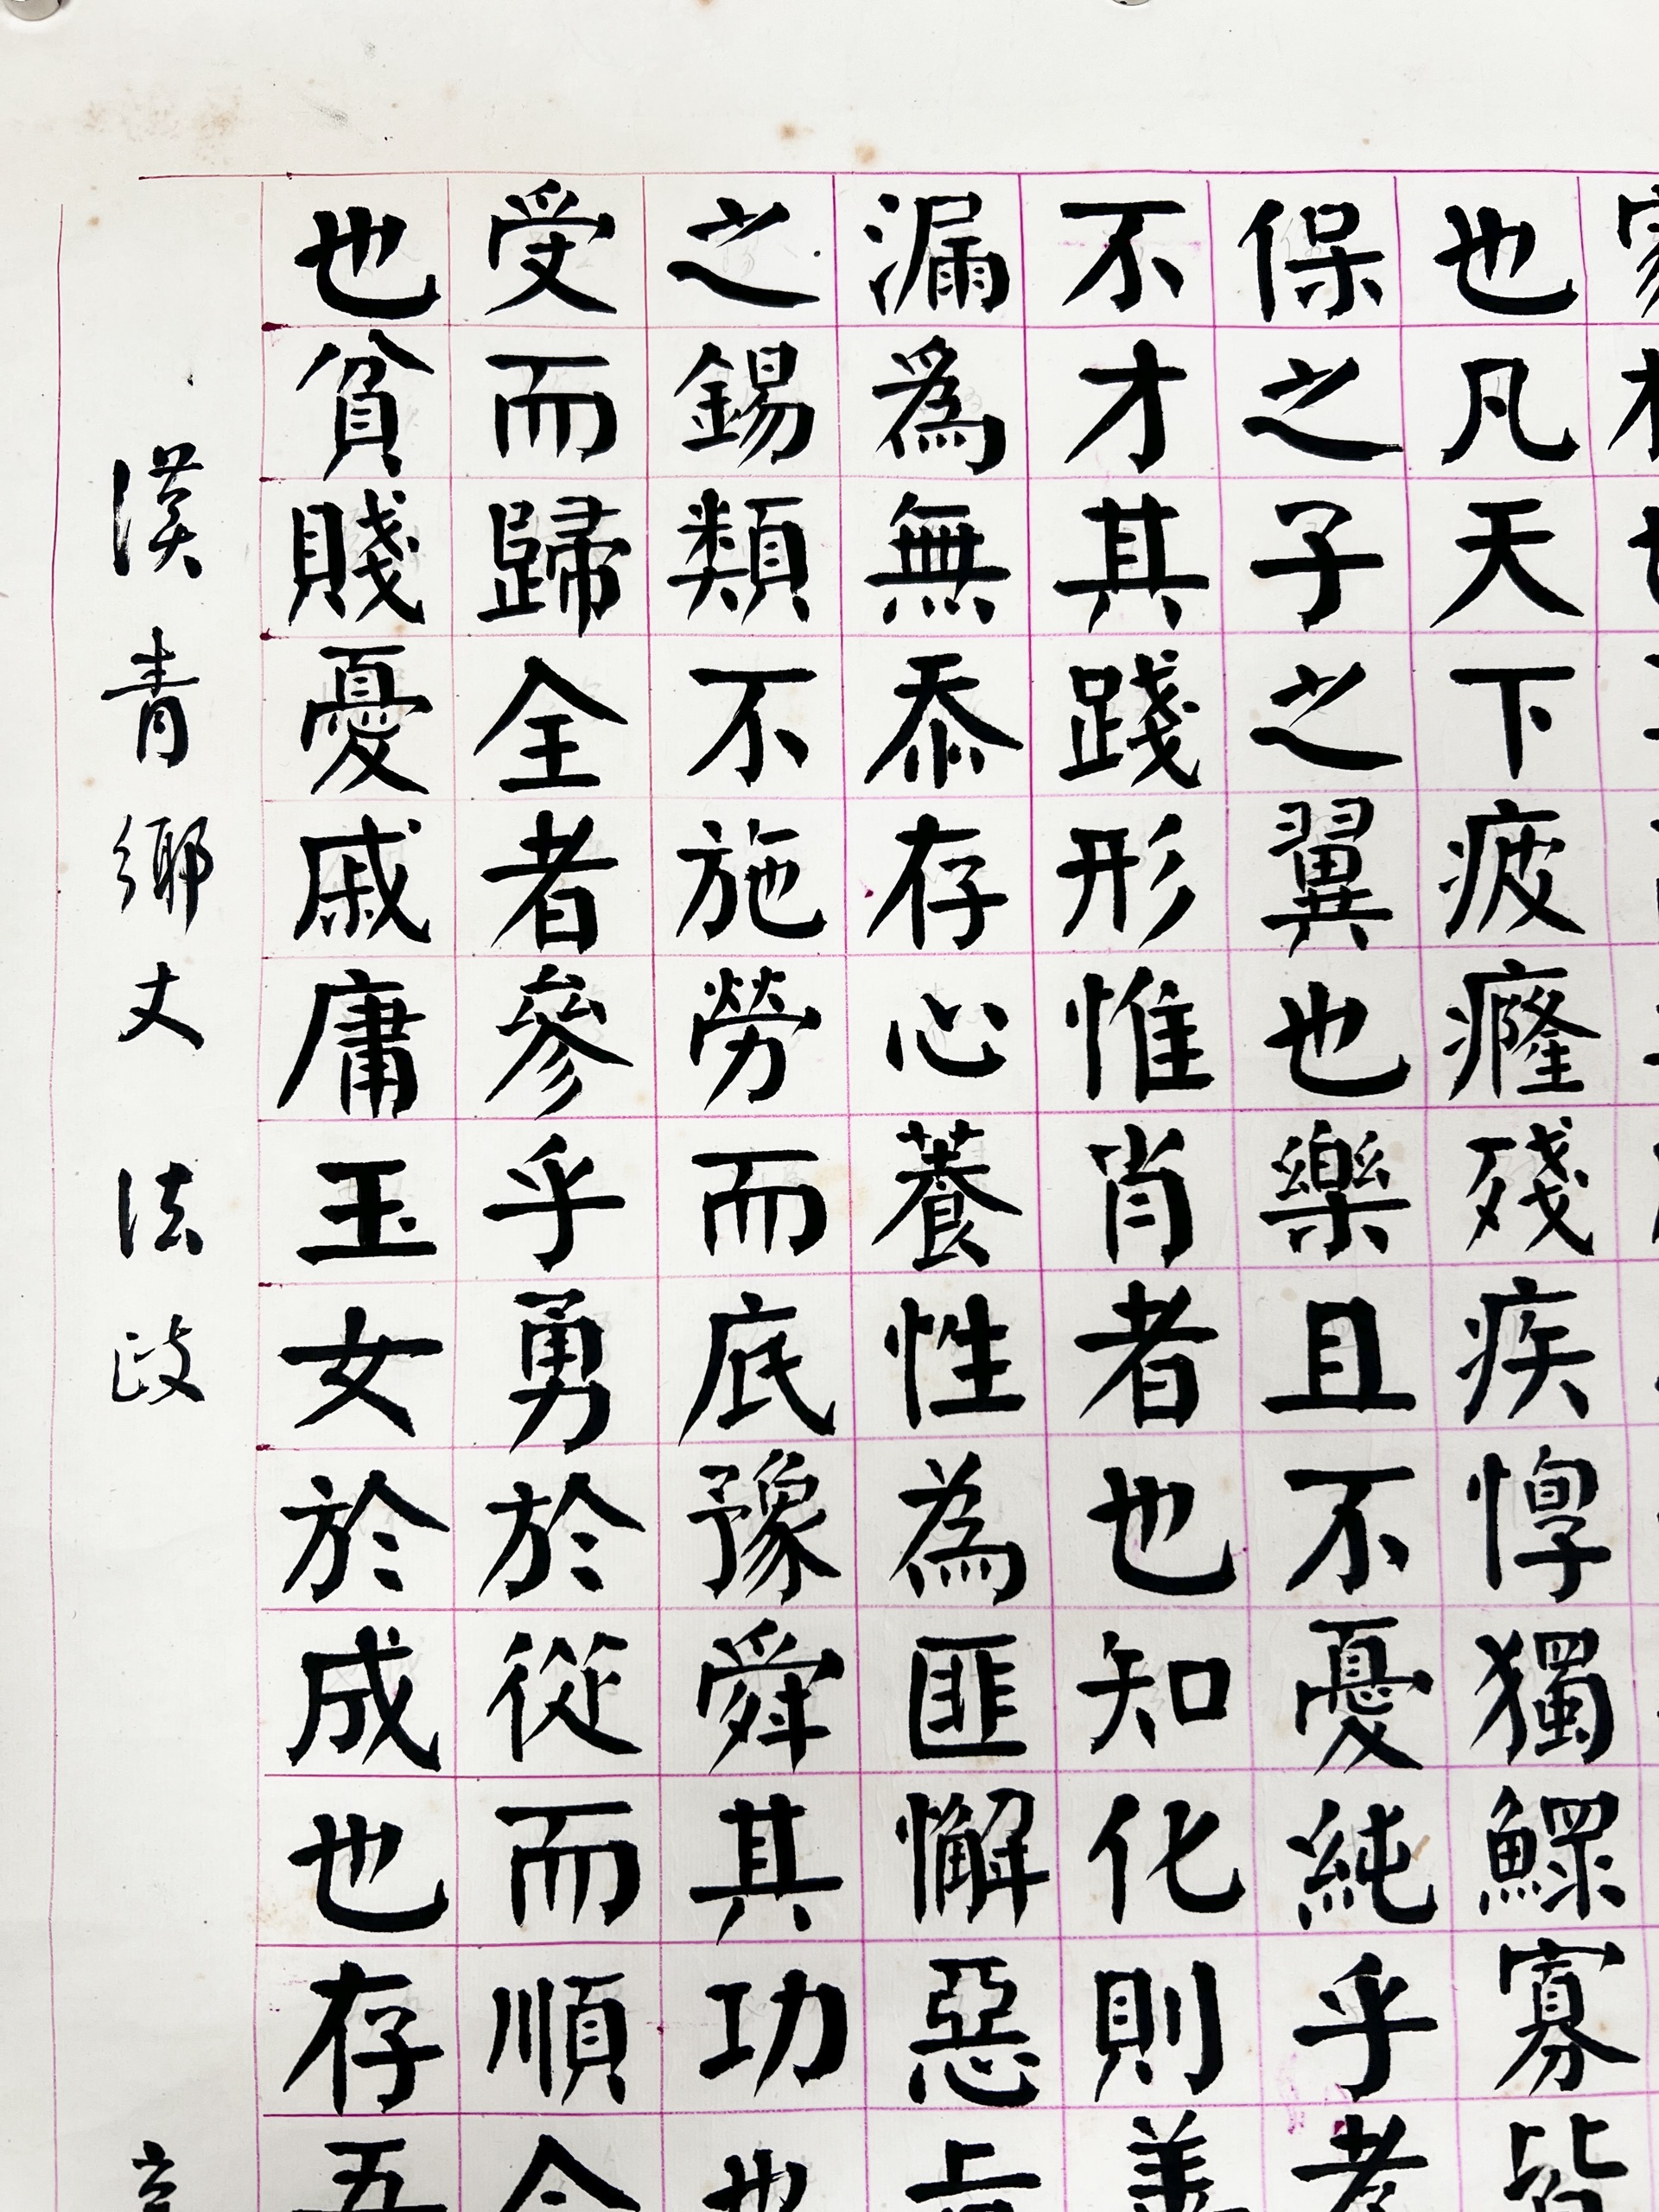 也凡天下疲癃殘疾惸獨鰥寡皆
保之子之翼也樂且不憂純乎孝
不才其踐形惟肖者也知化則善
漏爲無忝存心養性為匪懈惡旨
之錫類不施勞而底豫舜其功也
受而歸全者參乎勇於從而順令
也貧賤憂戚庸玉女於成也存吾
漢青鄉丈 法政